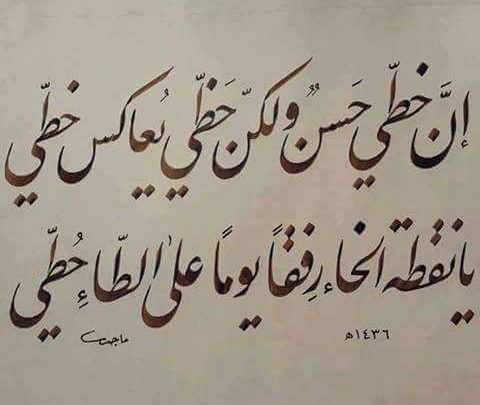 إنَّ خطّي حَسنٌ ولكنّ حَظّي يُعاكس خطّي
يا نقطة الخاءِ رِفقاً يوماً على الطّاءِ حُطّي
١٤٣٦ه